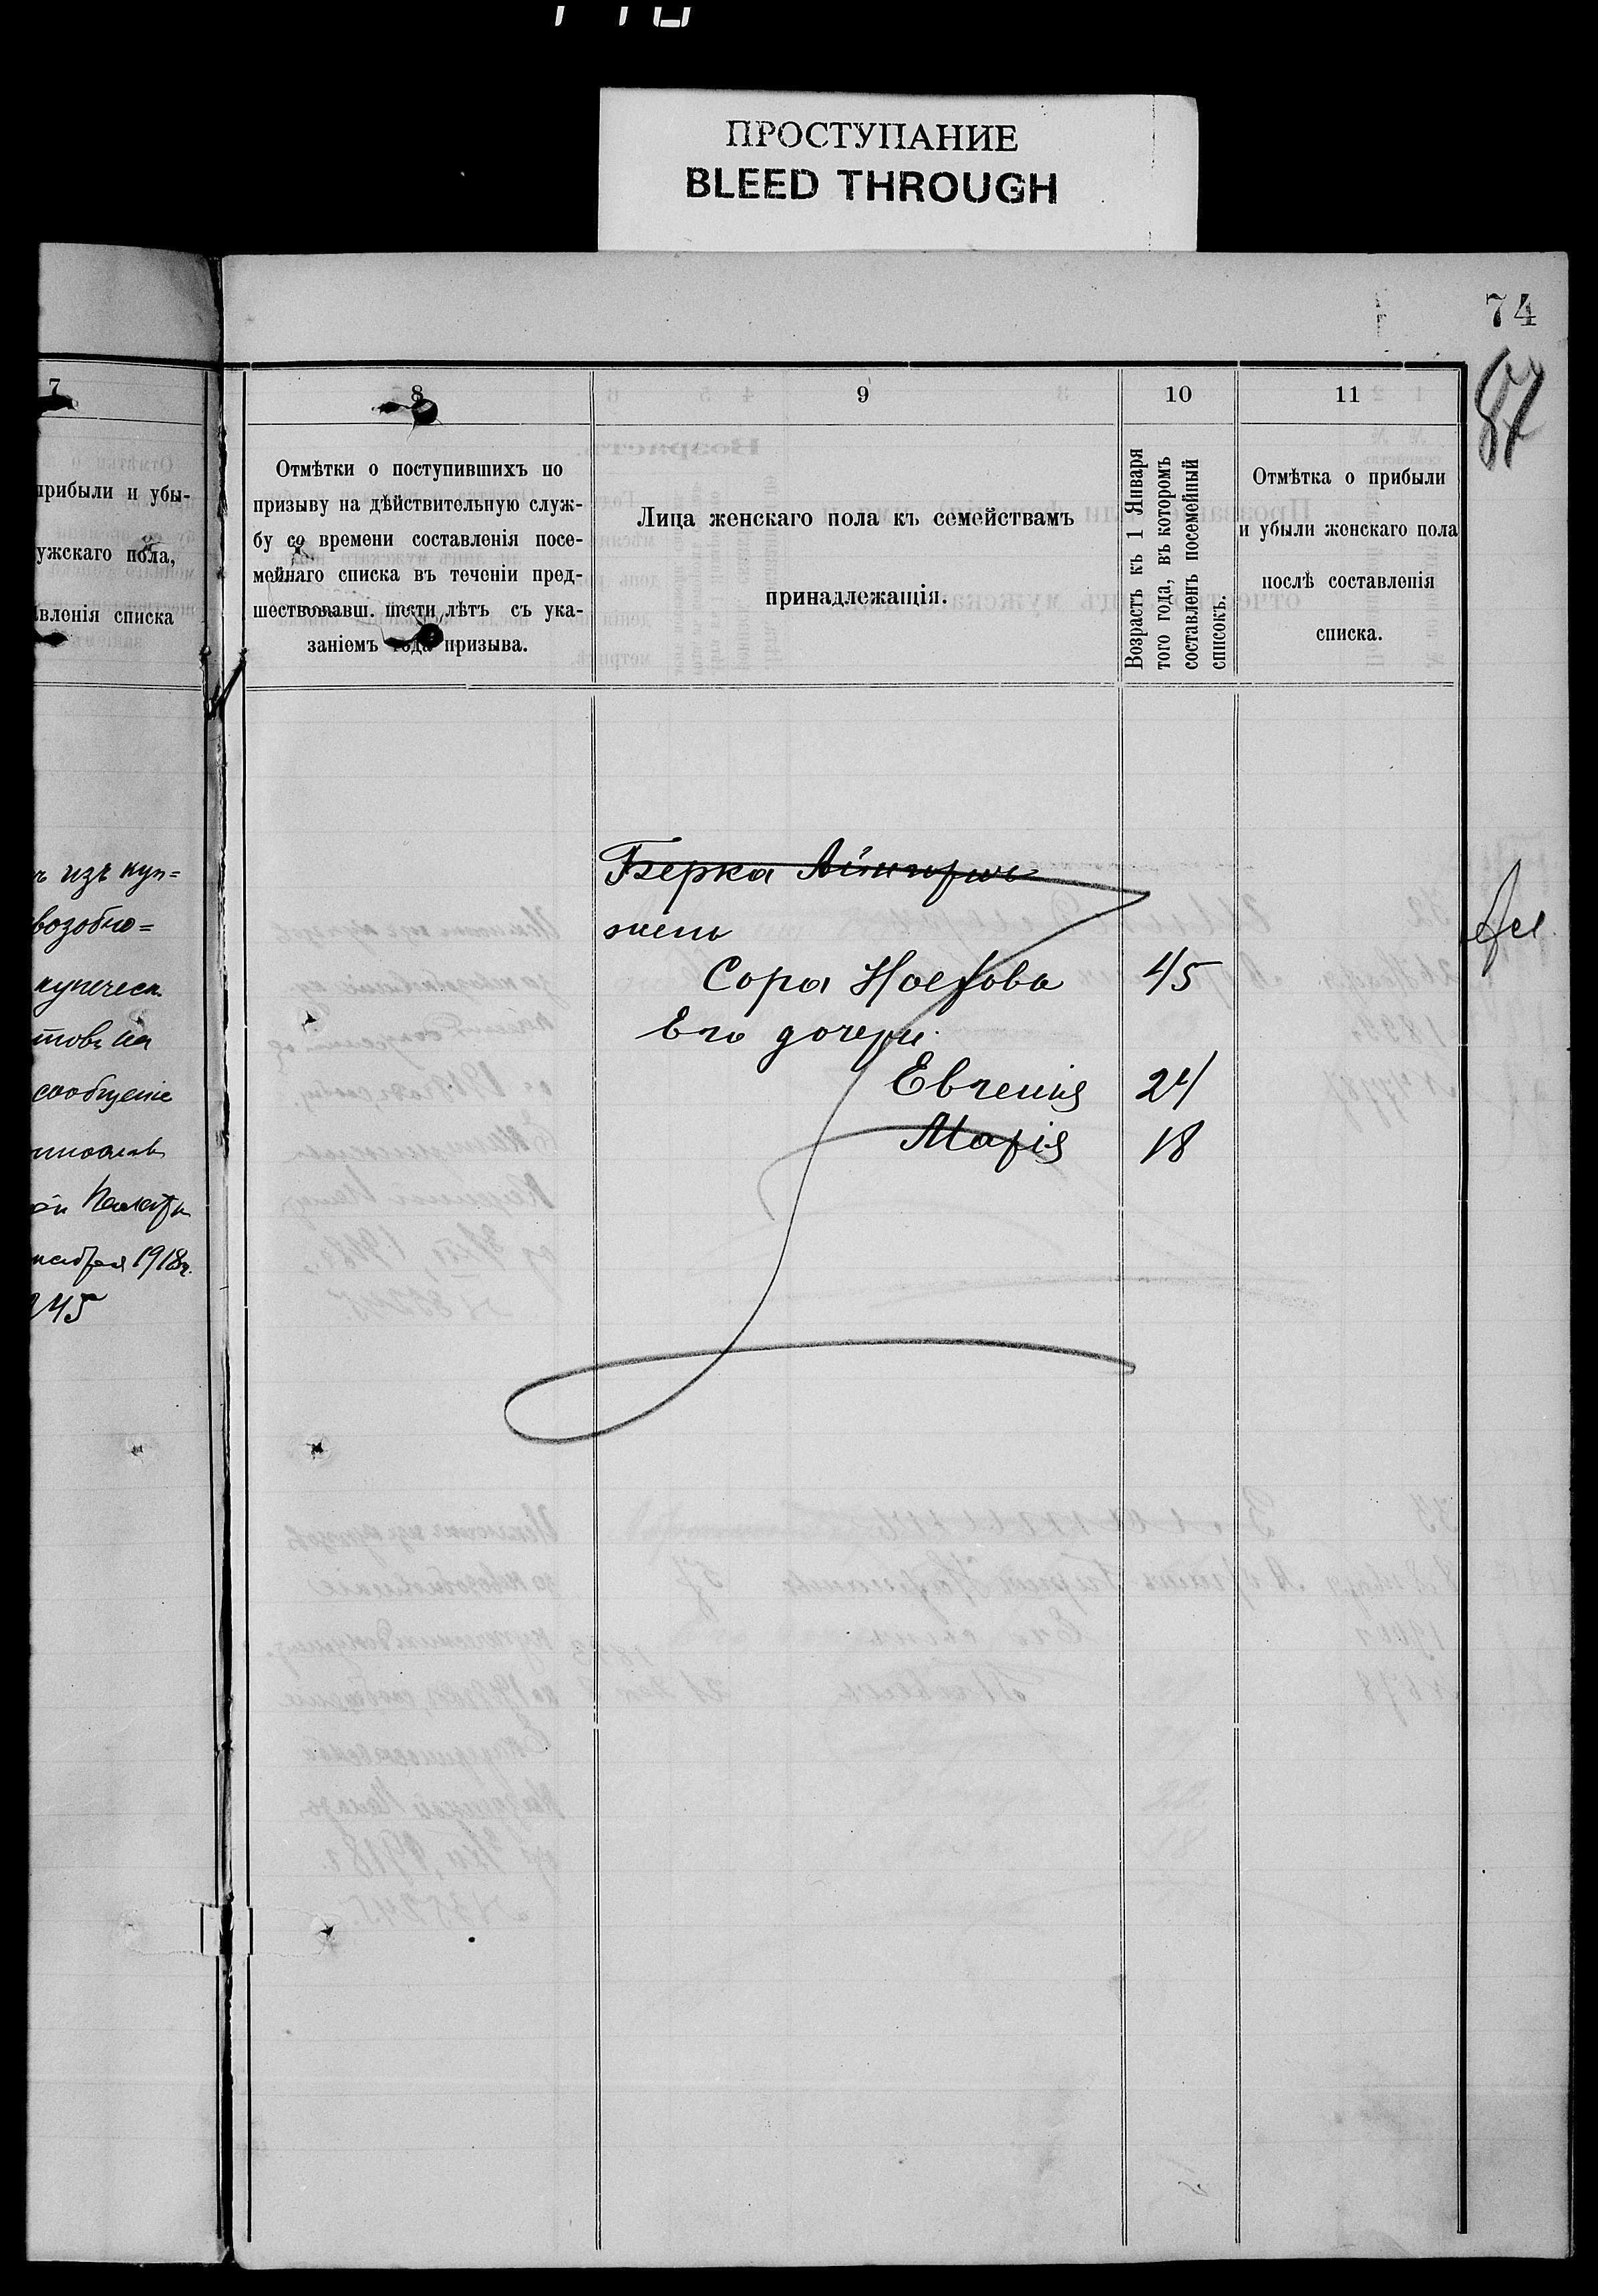 ПРОСТУПАНИЕ
BLEED THROUGH
74
87
7
прибыли и убы-
ужскаго пола,
авленія списка
ъ изъ куп=
возобно=
купеческ.
товъ на
сообщеніе
ой Палаты
1918г.
245
8
Отмѣтки о поступившихъ по
призыву на дѣйствительную служ-
бу со времени составленія посе-
мейнаго списка въ теченіи пред-
шествовавш. шести лѣтъ съ ука-
заніемъ года призыва.
9
Лица женскаго пола къ семействамъ
принадлежащія.
10
Возрастъ къ 1 Января
того года, въ которомъ
составленъ посемейный
списокъ.
11
Отмѣтка о прибыли
и убыли женскаго пола
послѣ составленія
списка.
Берка
жена
Сора Ноехова 45
Его дочери
Евгенія 24
Марія 18